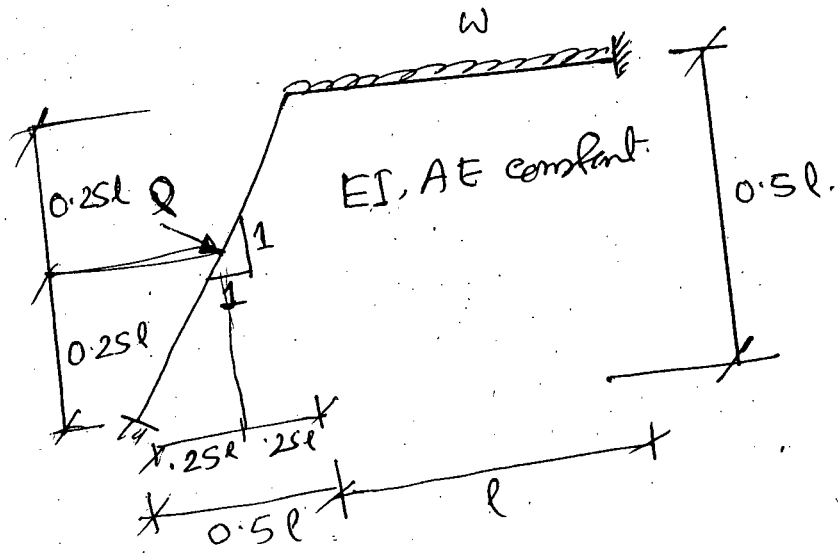 w
0.25l Q
EI, AE constant.
0.5l.
1
1
0.25l
.25l .25l
0.5l l